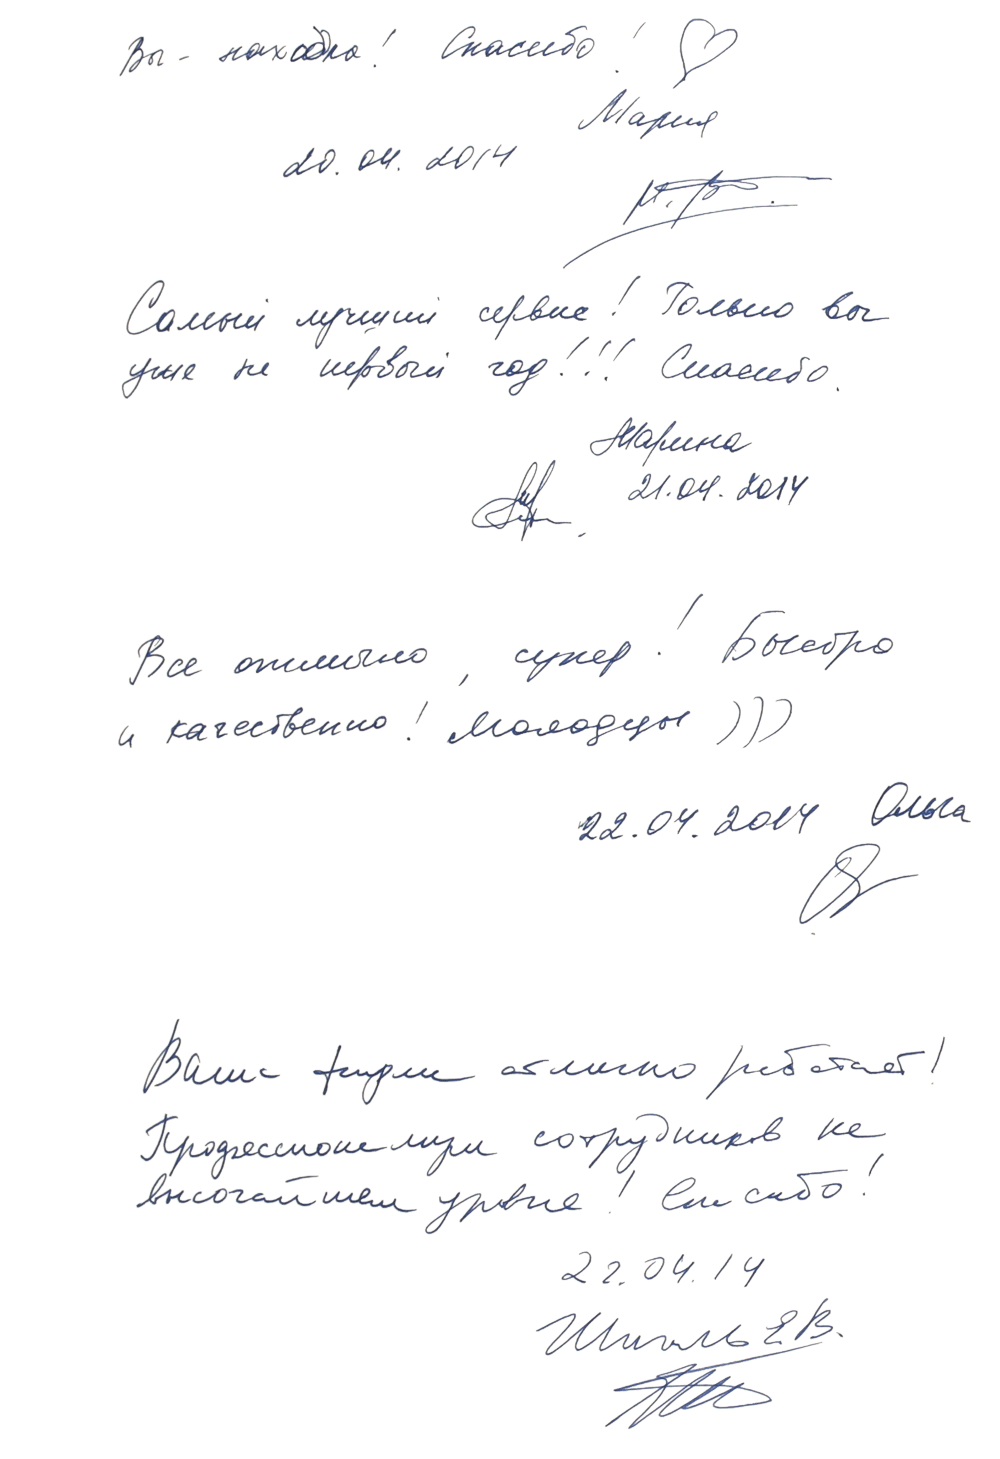 Вы - находка! Спасибо!
Мария
20.04.2014
Самый лучший сервис! Только вы
уже не первый год!!! Спасибо.
Марина
21.04.2014
Все отлично, супер! Быстро
и качественно! Молодцы )))
22.04.2014 Ольга
Ваша фирма отлично работает!
Профессионализм сотрудников на
высочайшем уровне! Спасибо!
22.04.14
Е.В.